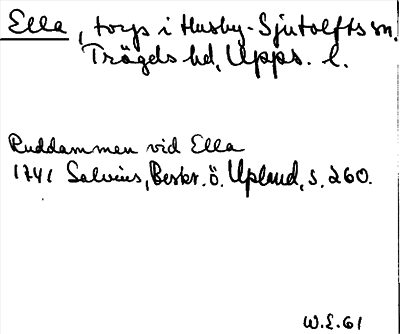 Ella, torp i Husby-Sjutolfts sn.
Trögds hd, Upps. l.
Ruddammen vid Ella
1741 Salvius, Beskr. ö. Upland, s. 260.
W.E. 61